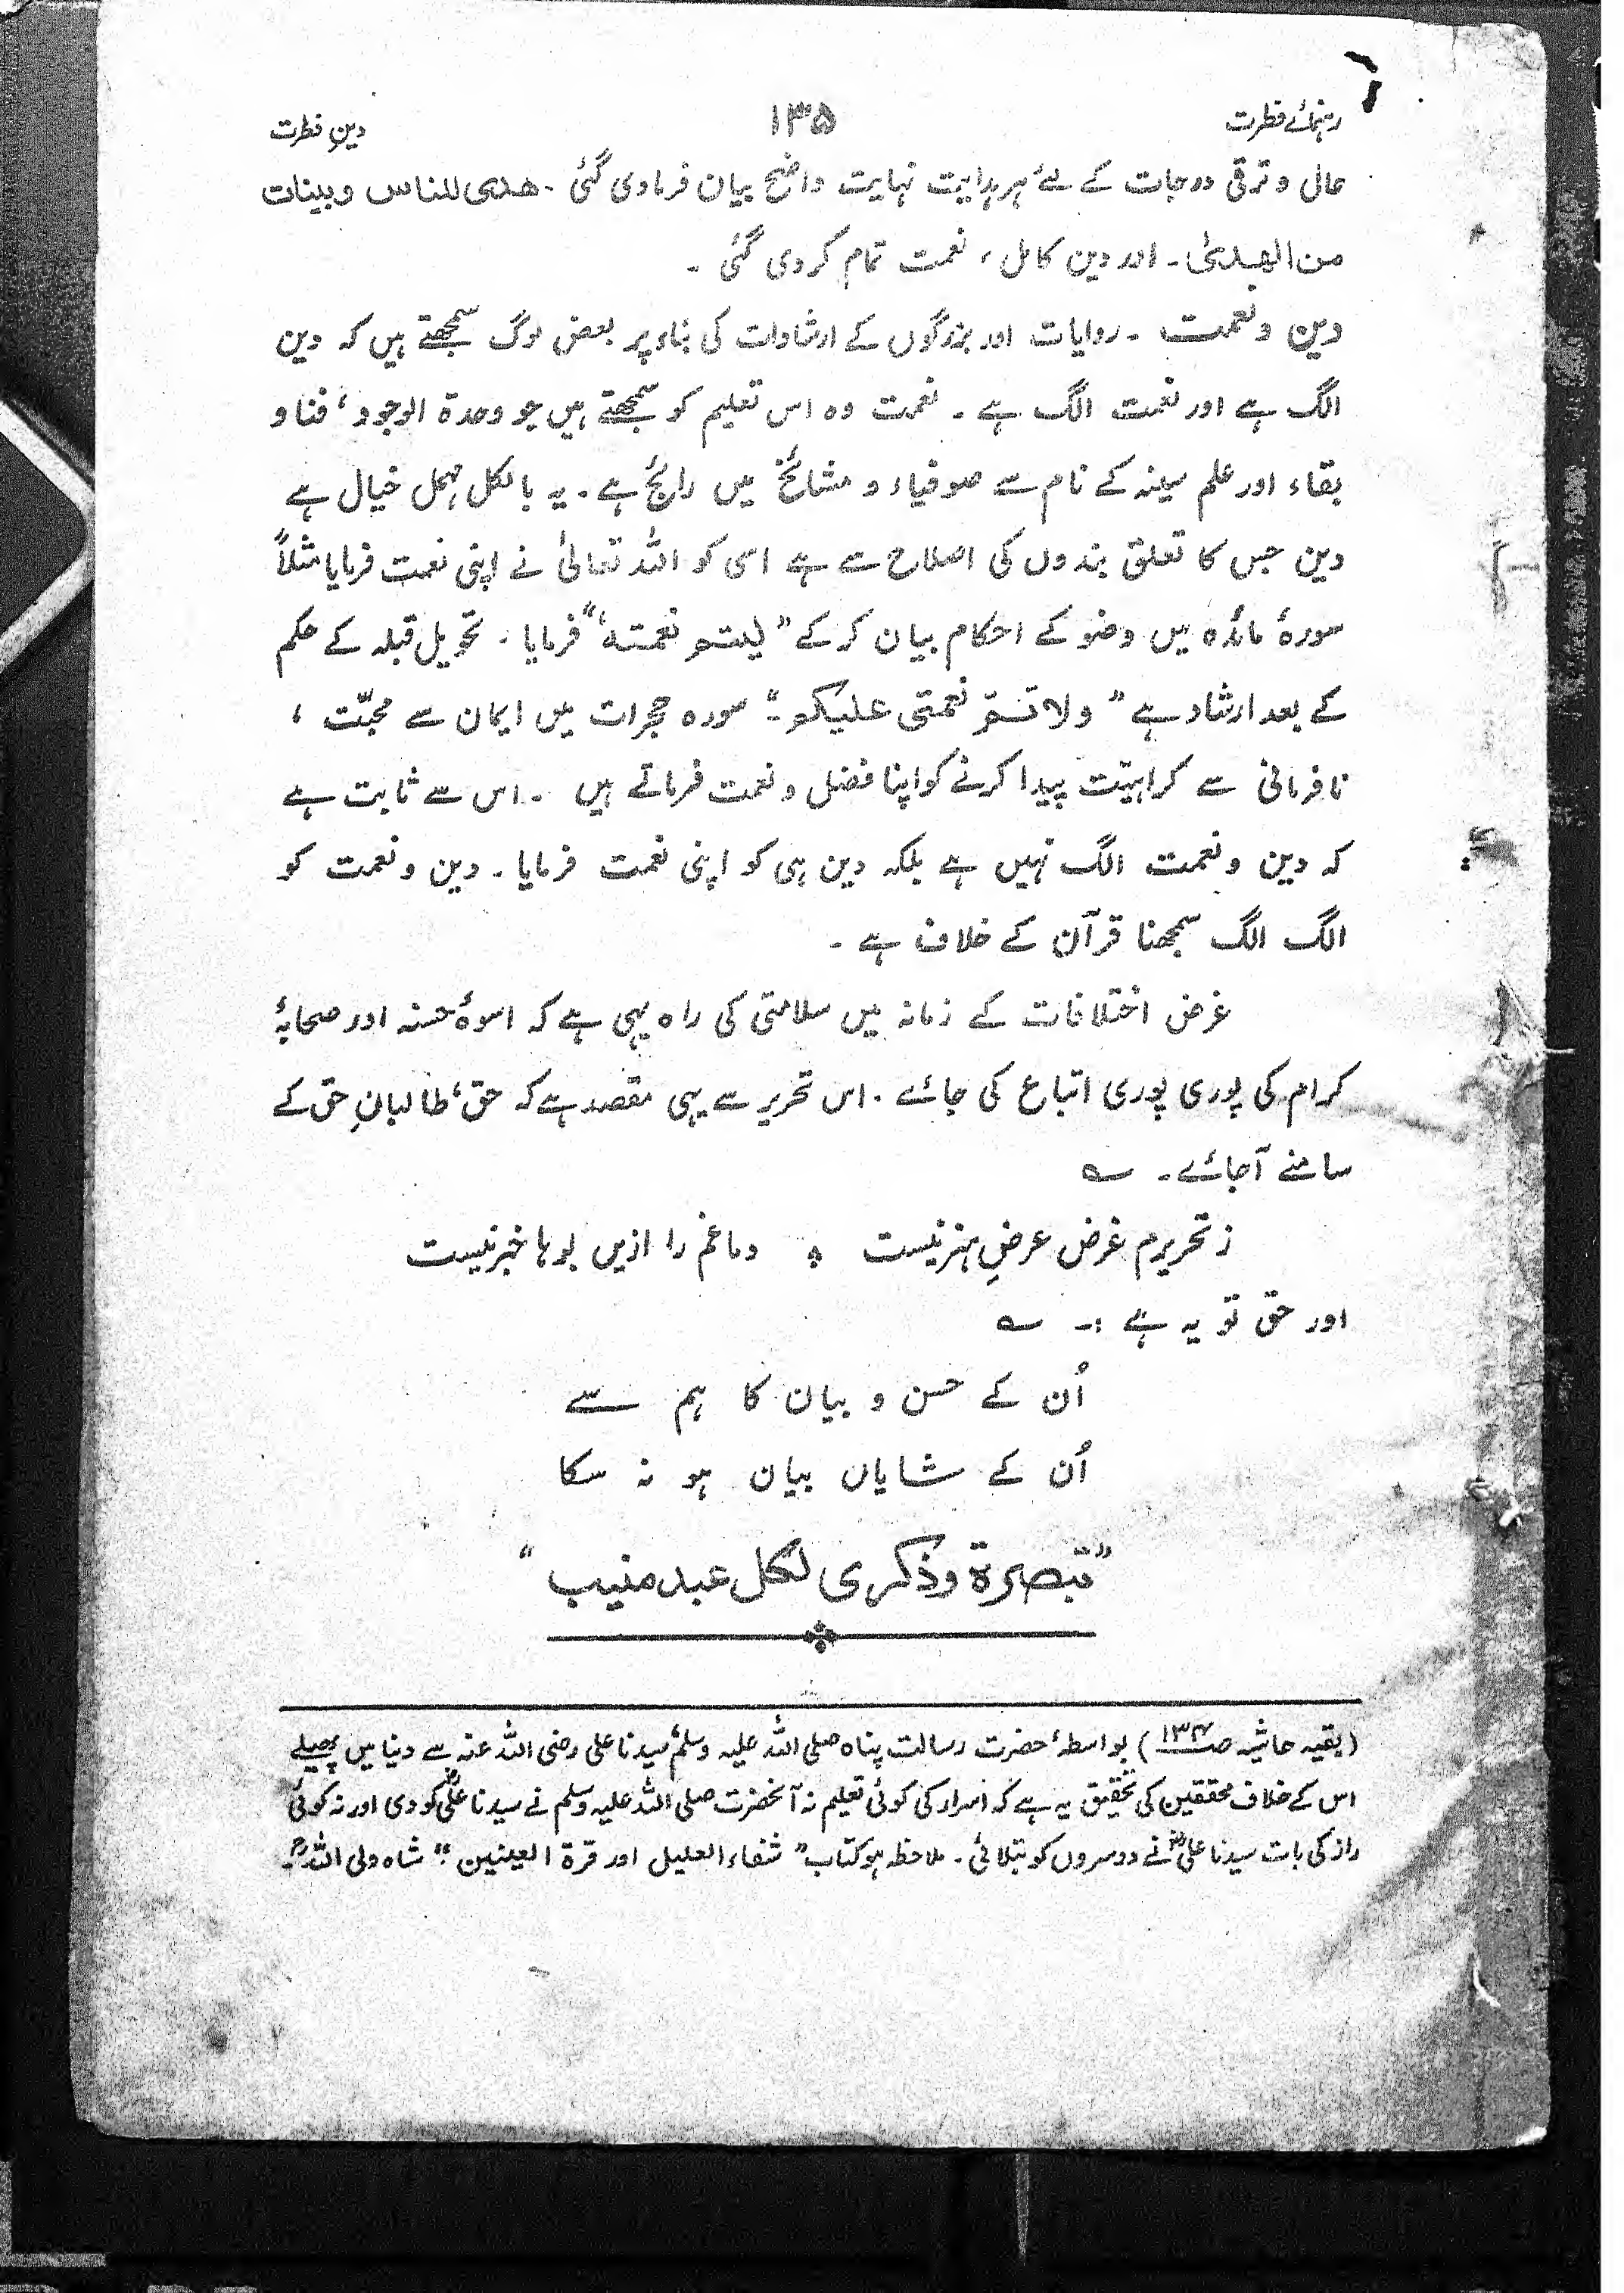 رہنمائے فطرت ۱۳۵ دینِ فطرت
حالی و ترقی درجات کے لئے ہر ہدایت نہایت واضح بیان فرمادی گئی ۔ ھدی للناس وبینات
من الھدیٰ ۔ اور دین کامل ، نعمت تمام کر دی گئی ۔
دین و نعمت ۔ روایات اور بزرگوں کے ارشادات کی بناء پر بعض لوگ سمجھتے ہیں کہ دین
الگ ہے اور نعمت الگ ہے ۔ نعمت وہ اس تعلیم کو سمجھتے ہیں جو وحدۃ الوجود ، فنا و
بقاء اور علم سینہ کے نام سے صوفیاء و مشائخ میں رائج ہے ۔ یہ بالکل مہمل خیال ہے
دین جس کا تعلق بندوں کی اصلاح سے ہے اسی کو اللہ تعالیٰ نے اپنی نعمت فرمایا مثلاً
سورۂ مائدہ میں وضو کے احکام بیان کر کے ” لیتم نعمتہ “ فرمایا ۔ تحویل قبلہ کے حکم
کے بعد ارشاد ہے ” ولاتمّ نعمتی علیکم ۔“ سورہ حجرات میں ایمان سے محبّت ،
نافرمانی سے کراہیّت پیدا کرنے کو اپنا فضل و نعمت فرماتے ہیں ۔ اس سے ثابت ہے
کہ دین و نعمت الگ نہیں ہے بلکہ دین ہی کو اپنی نعمت فرمایا ۔ دین و نعمت کو
الگ الگ سمجھنا قرآن کے خلاف ہے ۔
غرض اختلافات کے زمانہ میں سلامتی کی راہ یہی ہے کہ اسوۂ حسنہ اور صحابۂ
کرام کی پوری پوری اتباع کی جائے ۔ اس تحریر سے یہی مقصد ہے کہ حق ، طالبانِ حق کے
سامنے آجائے ۔ ؎
ز تحریرم غرض عرضِ ہنر نیست ؞ دماغم را ازیں بوہا خبر نیست
اور حق تو یہ ہے :۔ ؎
اُن کے حسن و بیان کا ہم سے
اُن کے شایاں بیان ہو نہ سکا
” تبصرۃ وذکری لکل عبد منیب “
( بقیہ حاشیہ ص ۱۳۴ ) بواسطۂ حضرت رسالت پناہ صلی اللہ علیہ وسلم سیدنا علی رضی اللہ عنہ سے دنیا میں پھیلے
اس کے خلاف محققین کی تحقیق یہ ہے کہ اسرار کی کوئی تعلیم نہ آنحضرت صلی اللہ علیہ وسلم نے سیدنا علیؓ کو دی اور نہ کوئی
راز کی بات سیدنا علیؓ نے دوسروں کو بتلائی ۔ ملاحظہ ہو کتاب ” شفاء العلیل اور قرۃ العینین “ شاہ ولی اللہؒ ۔